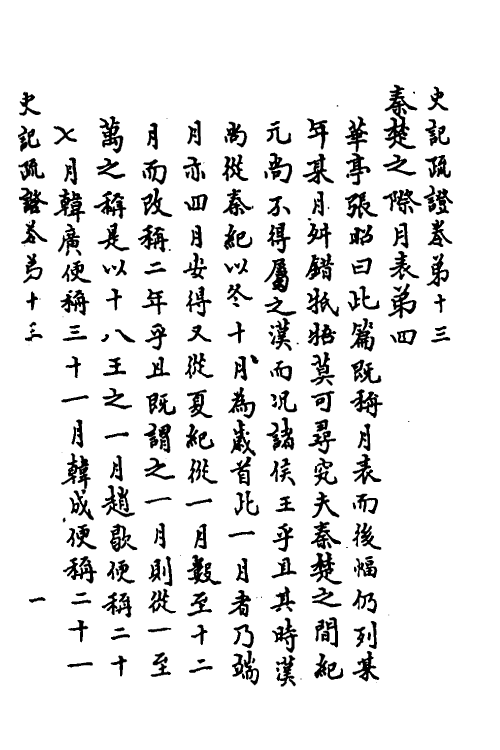 史記疏證卷第十三
秦楚之際月表第四
華亭張昭曰此篇既稱月表而後幅仍列某
年某月舛錯牴牾莫可尋究夫秦楚之間紀
元尚不得屬之漢而況諸侯王乎且其時漢
尚從秦紀以冬十月為歲首此一月者乃端
月亦四月安得又從夏紀從一月數至十二
月而改稱二年乎且既謂之一月則從一至
萬之稱是以十八王之一月趙歇便稱二十
七月韓廣便稱三十一月韓成便稱二十一
史記疏證卷第十三
一